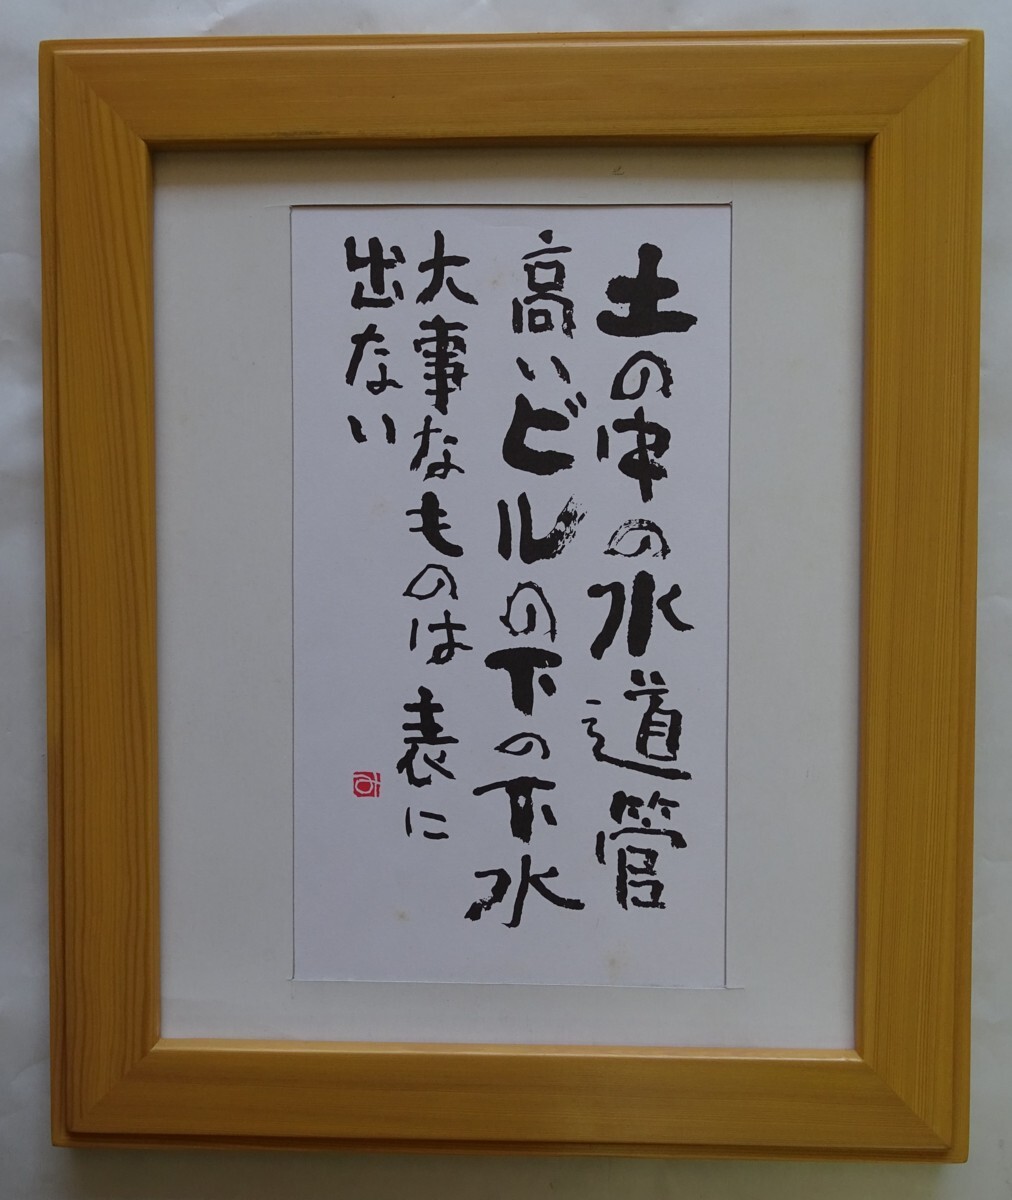 土の中の水道管
高いビルの下の下水
大事なものは表に
出ない
み